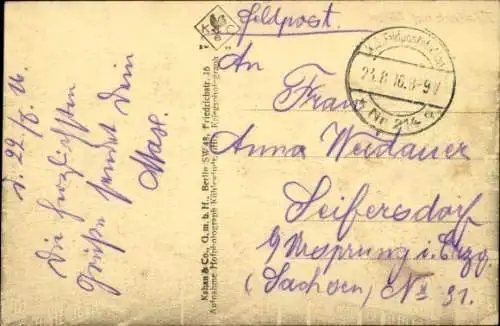 d. 22./8. 16.
Die herzlichsten
Grüße sendet Dein
Max.
Kahan & Co., G. m. b. H., Berlin SW 48, Friedrichstr. 16
Aufnahme Hofphotograph Kühlewindt, Kriegsphotograph
Feldpost.
K.S. Feldpoststation
23.8.16.8-9V
* Nr. 214 *
An
Frau
Anna Weidauer
Seifersdorf
b/ Ursprung i. Erzg.
(Sachsen) No 31.